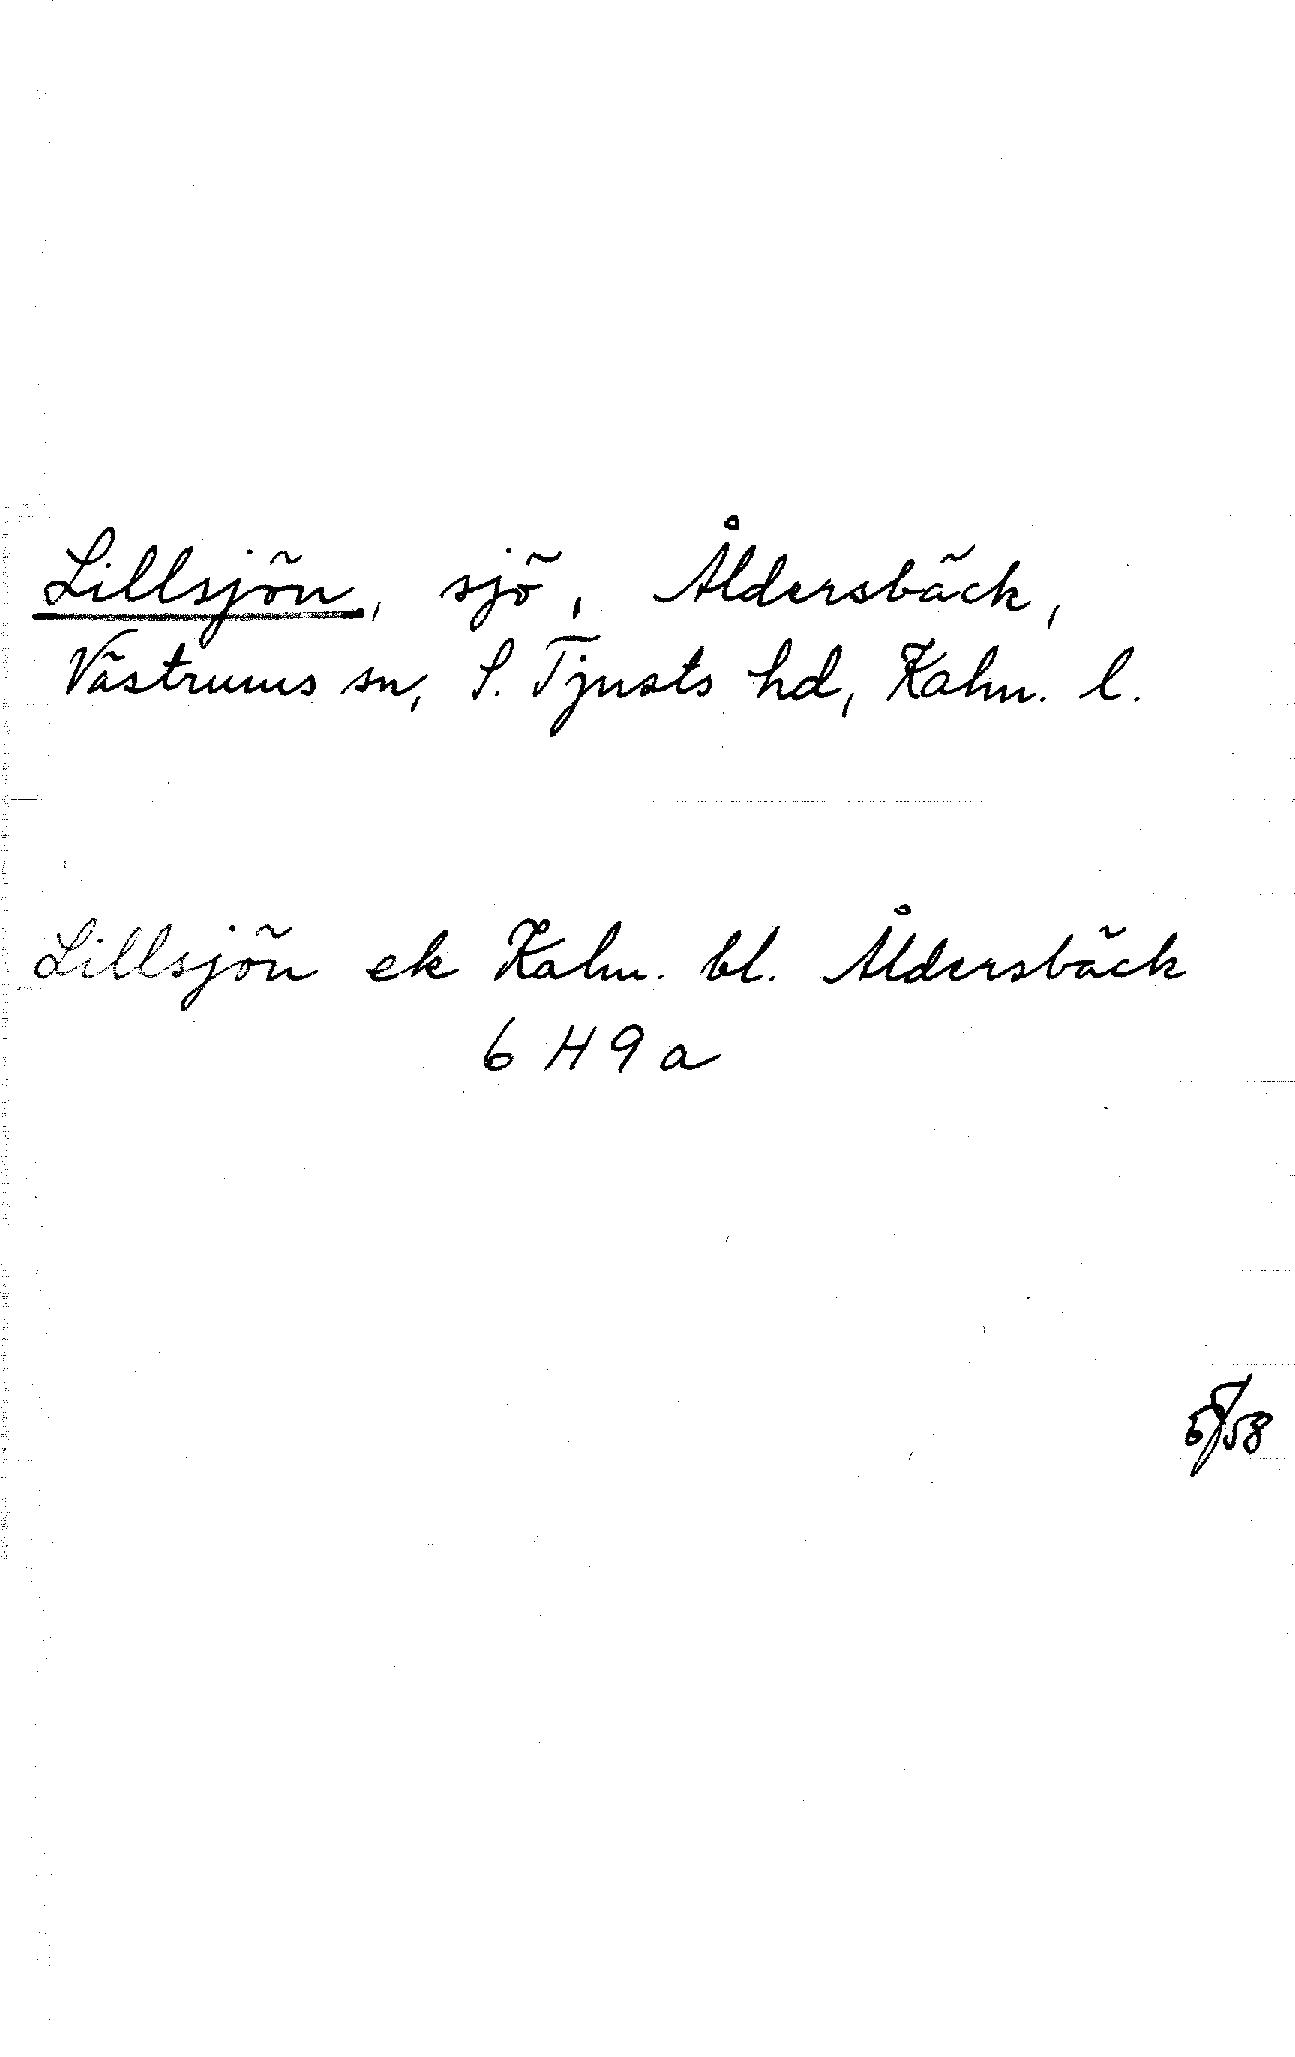 Lillsjön, sjö, Åldersbäck,
Västrums sn, S. Tjusts hd, Kalm. l.
Lillsjön ek Kalm. bl. Åldersbäck
6 H 9 a